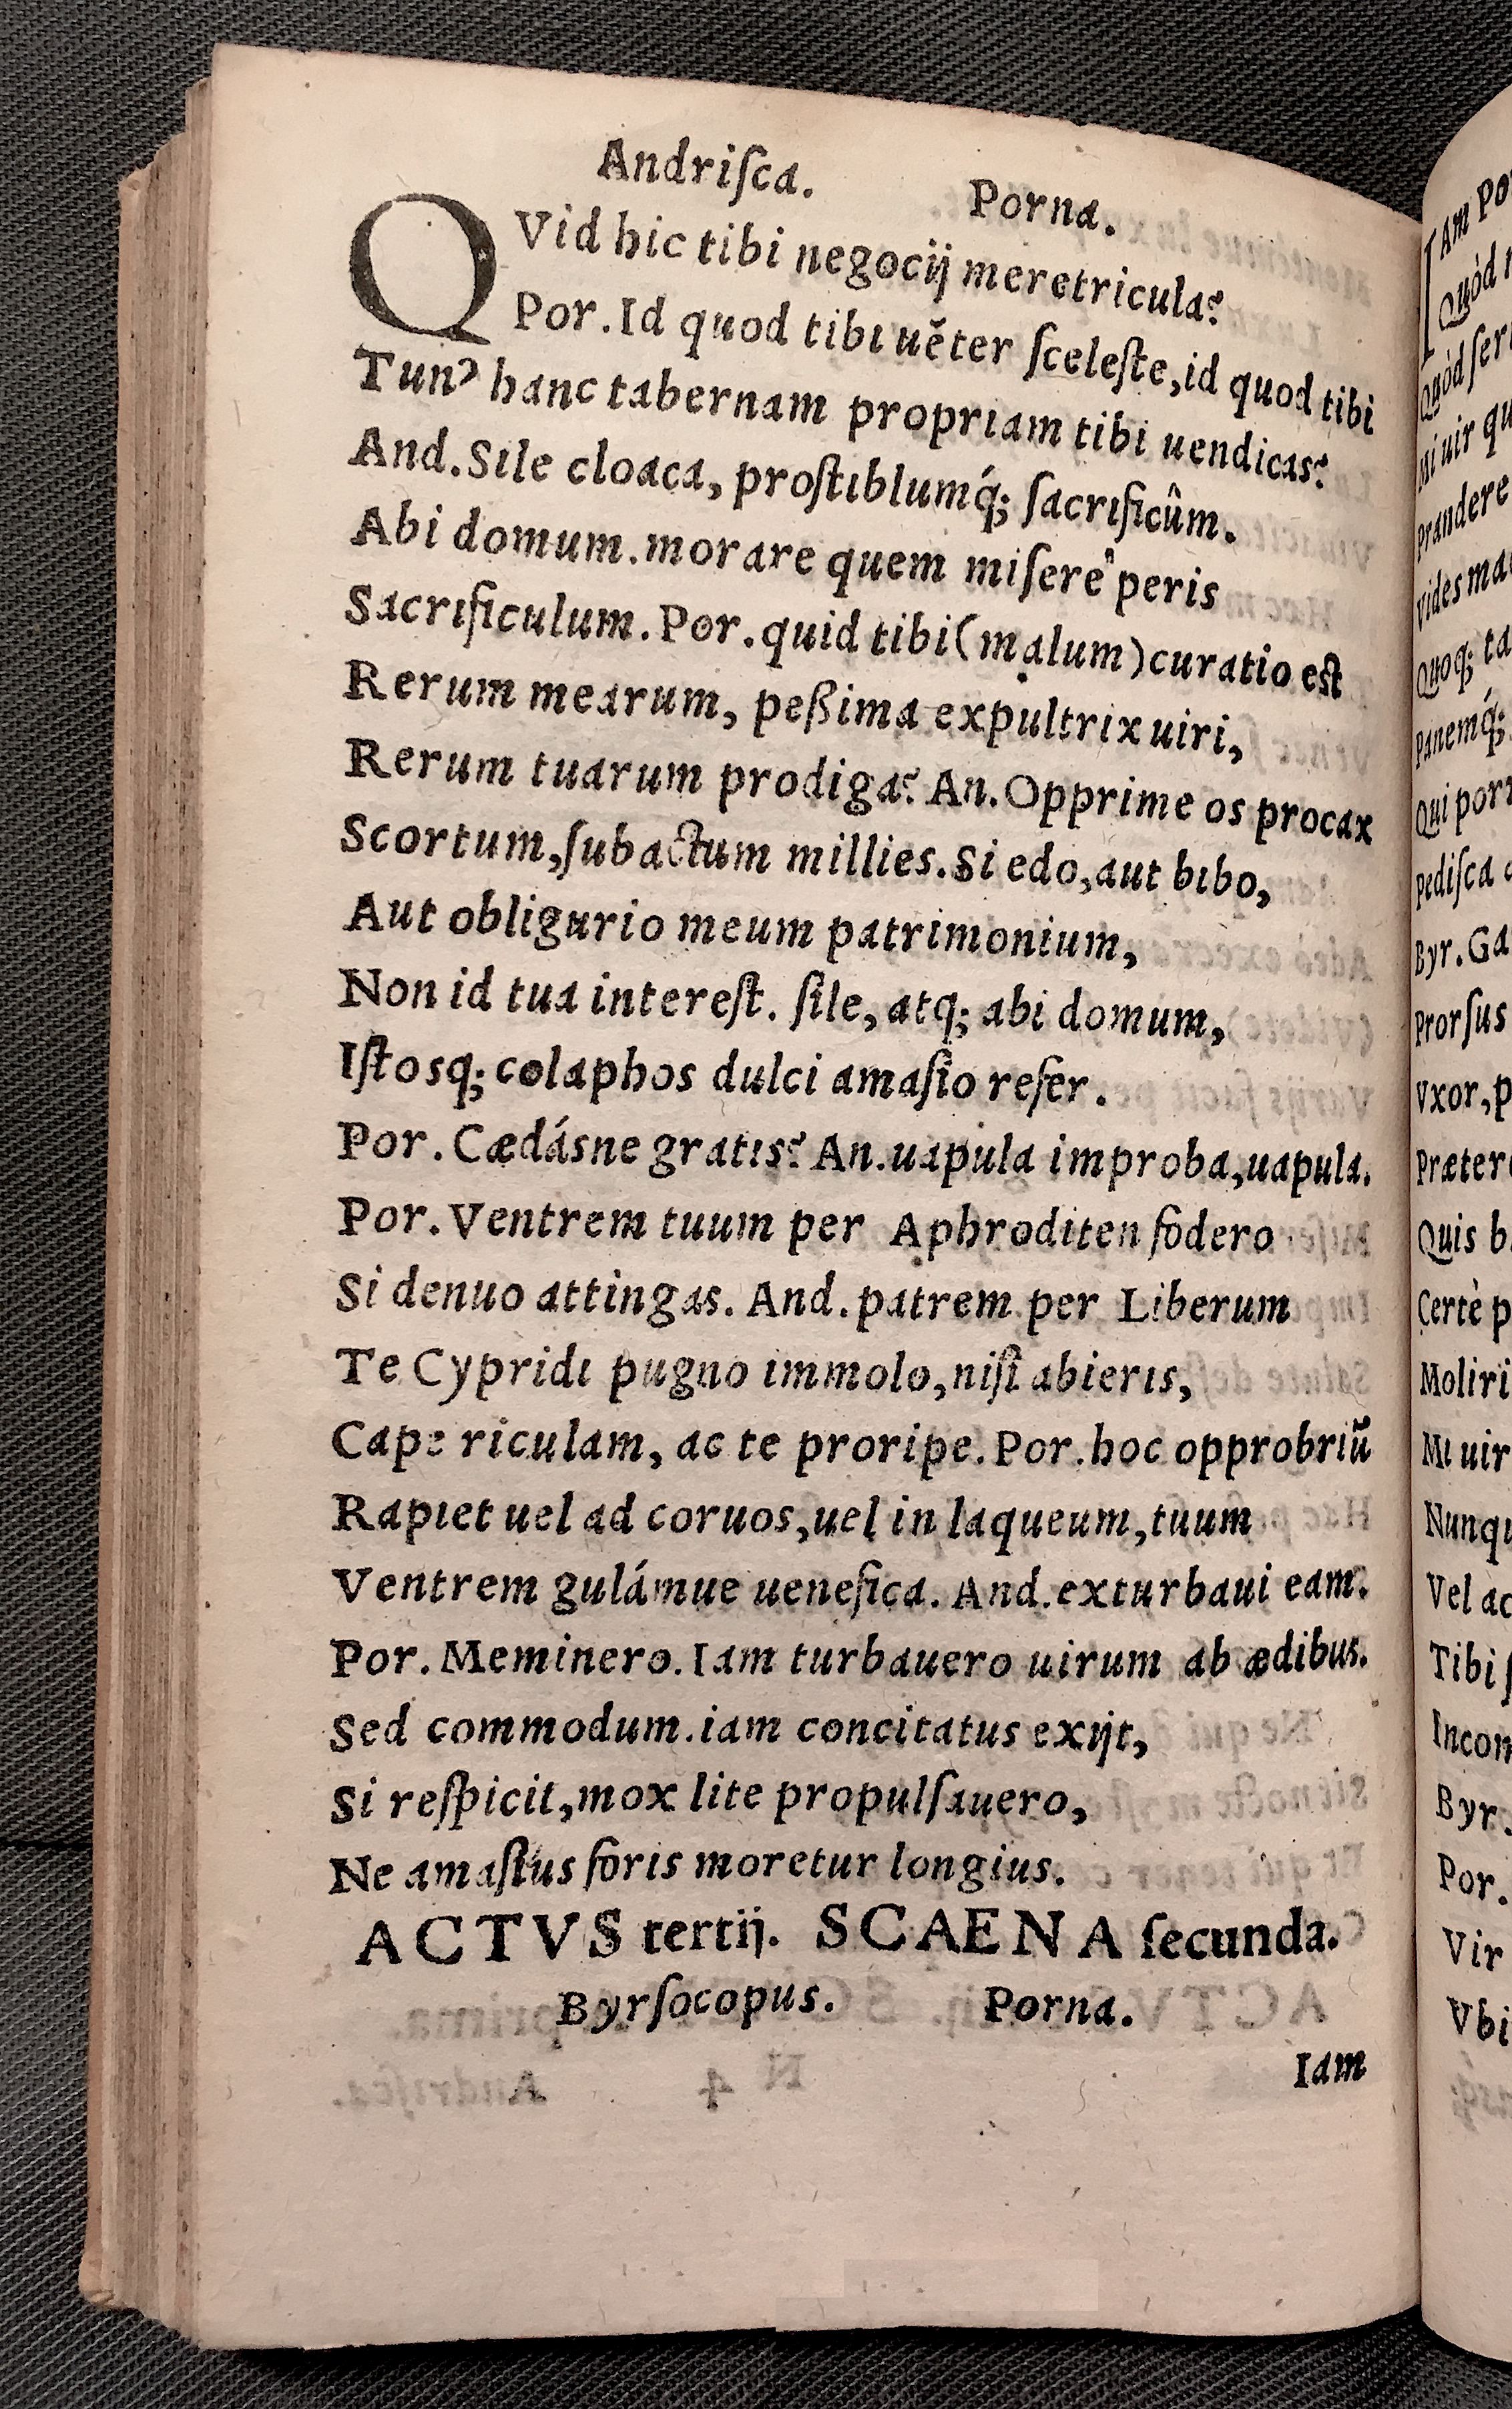 Andriſca. Porna.
QVid hic tibi negocij meretricula?
Por. Id quod tibi uẽter ſceleſte, id quod tibi
Tun' hanc tabernam propriam tibi uendicas?
And. Sile cloaca, proſtiblumq́; ſacrificûm.
Abi domum. morare quem miſerè peris
Sacrificulum. Por. quid tibi (malum) curatio eſt
Rerum mearum, peßima expultrix uiri,
Rerum tuarum prodiga? An. Opprime os procax
Scortum, ſubactum millies. Si edo, aut bibo,
Aut obligurio meum patrimonium,
Non id tua intereſt. ſile, atq; abi domum,
Iſtosq; colaphos dulci amaſio refer.
Por. Cædásne gratis? An. uapula improba, uapula.
Por. Ventrem tuum per Aphroditen fodero
Si denuo attingas. And. patrem per Liberum
Te Cypridi pugno immolo, niſi abieris,
Cape riculam, ac te proripe. Por. hoc opprobriũ
Rapiet uel ad coruos, uel in laqueum, tuum
Ventrem gulámue uenefica. And. exturbaui eam.
Por. Meminero. Iam turbauero uirum ab ædibus.
Sed commodum. iam concitatus exijt,
Si reſpicit, mox lite propulſauero,
Ne amaſius foris moretur longius.
ACTVS tertij. SCAENA ſecunda.
Byrſocopus. Porna.
Iam
IAm Por
Quòd
Quòd ſer
Mi uir qu
Prandere
Vides ma
Quoq; ta
Panemq́;
Qui porr
Pediſca
Byr. Ga
Prorſus
Vxor, p
Præter
Quis b
Certè p
Moliri
Mi uir
Nunqu
Vel ac
Tibi
Incom
Byr.
Por.
Vir
Vbi